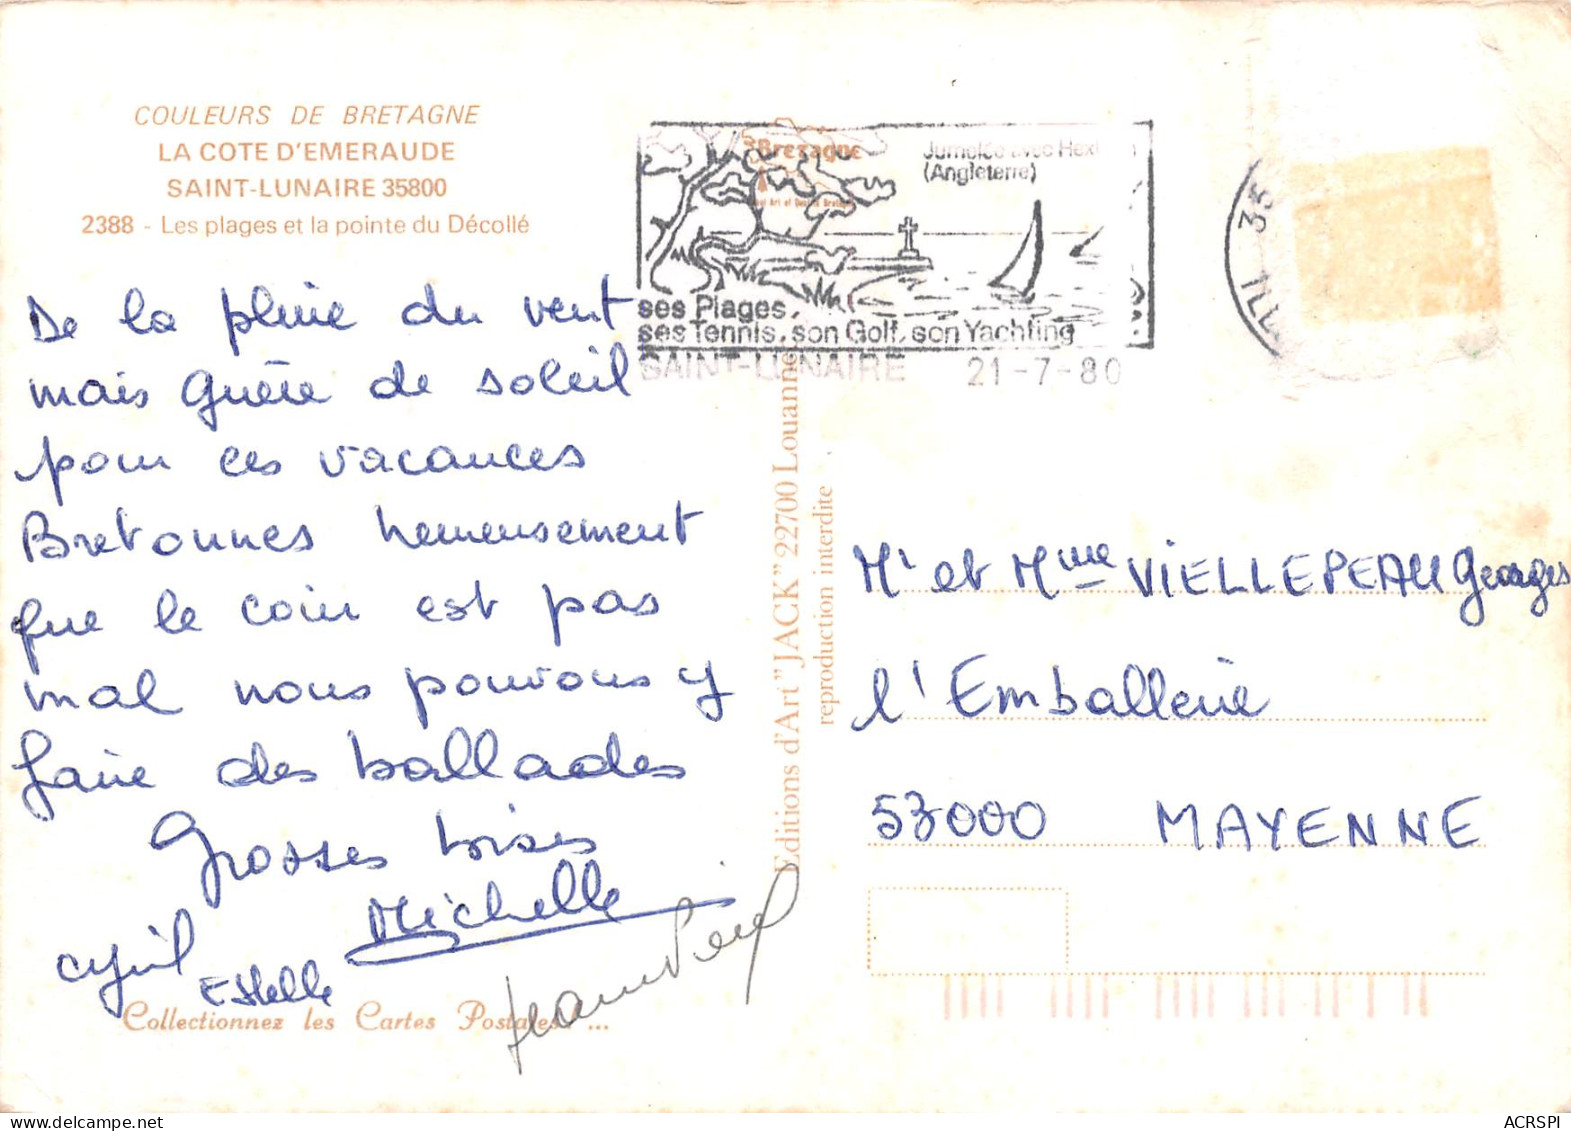 COULEURS DE BRETAGNE
LA COTE D'EMERAUDE
SAINT-LUNAIRE 35800
2388 - Les plages et la pointe du Décollé
De la pluie du vent
mais Guère de soleil
pour ces vacances
Bretonnes heureusement
que le coin est pas
mal nous pouvons y
faire des ballades
Grosses bises
Michelle
Cyril
Estelle
Collectionnez les Cartes Postales! ...
Bretagne
Jumelée avec
(Angleterre)
ses Plages,
ses Tennis, son Golf, son Yachting
SAINT-LUNAIRE 21-7-80
35
Editions d'Art "JACK" 22700 Louannec
reproduction interdite
Mr et Mme VIELLEPEAU Georges
l'Emballerie
53000 MAYENNE
ACRSPI